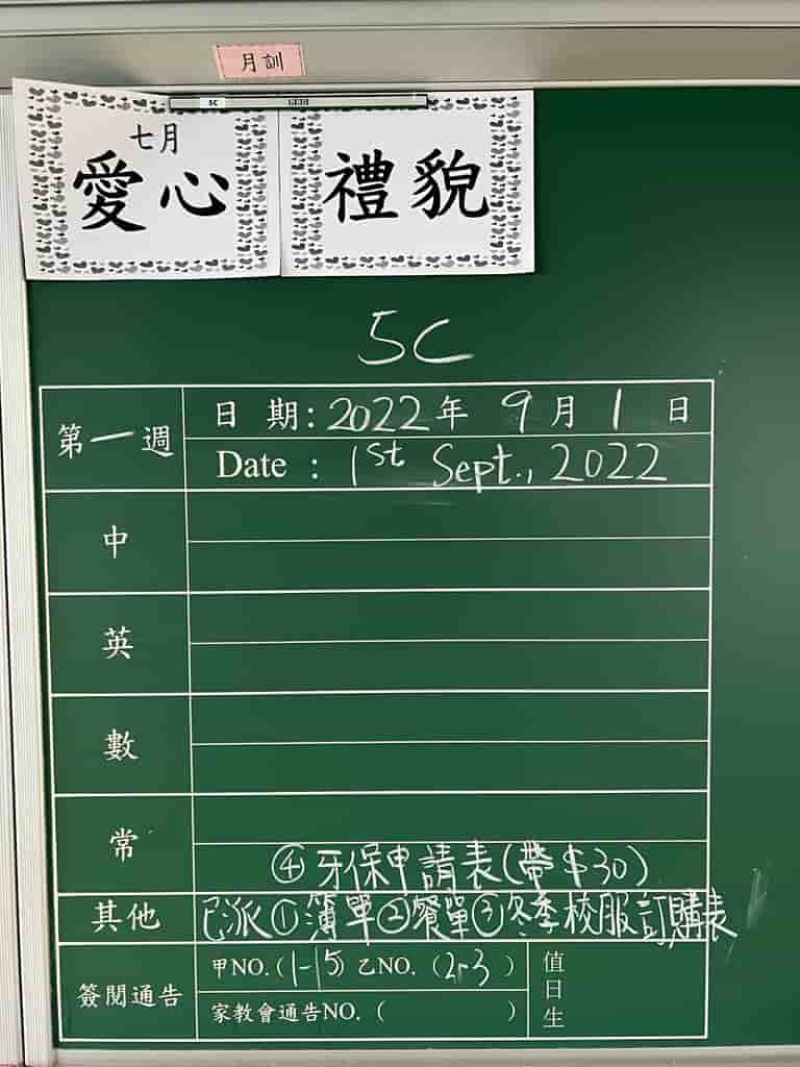 月訓
七月
愛心 禮貌
5C
第一週
日 期：2022年 9月 1 日
Date : 1st Sept., 2022
中
英
數
常
④牙保申請表(帶$30)
其他 已派①簿單②餐單③冬季校服訂購表
簽閱通告
甲NO.(1-15) 乙NO. (2-3 )
家教會通告NO. ( )
值日生